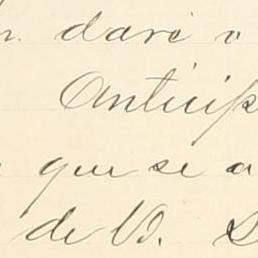 daré
Anticip
que se a
de V. S